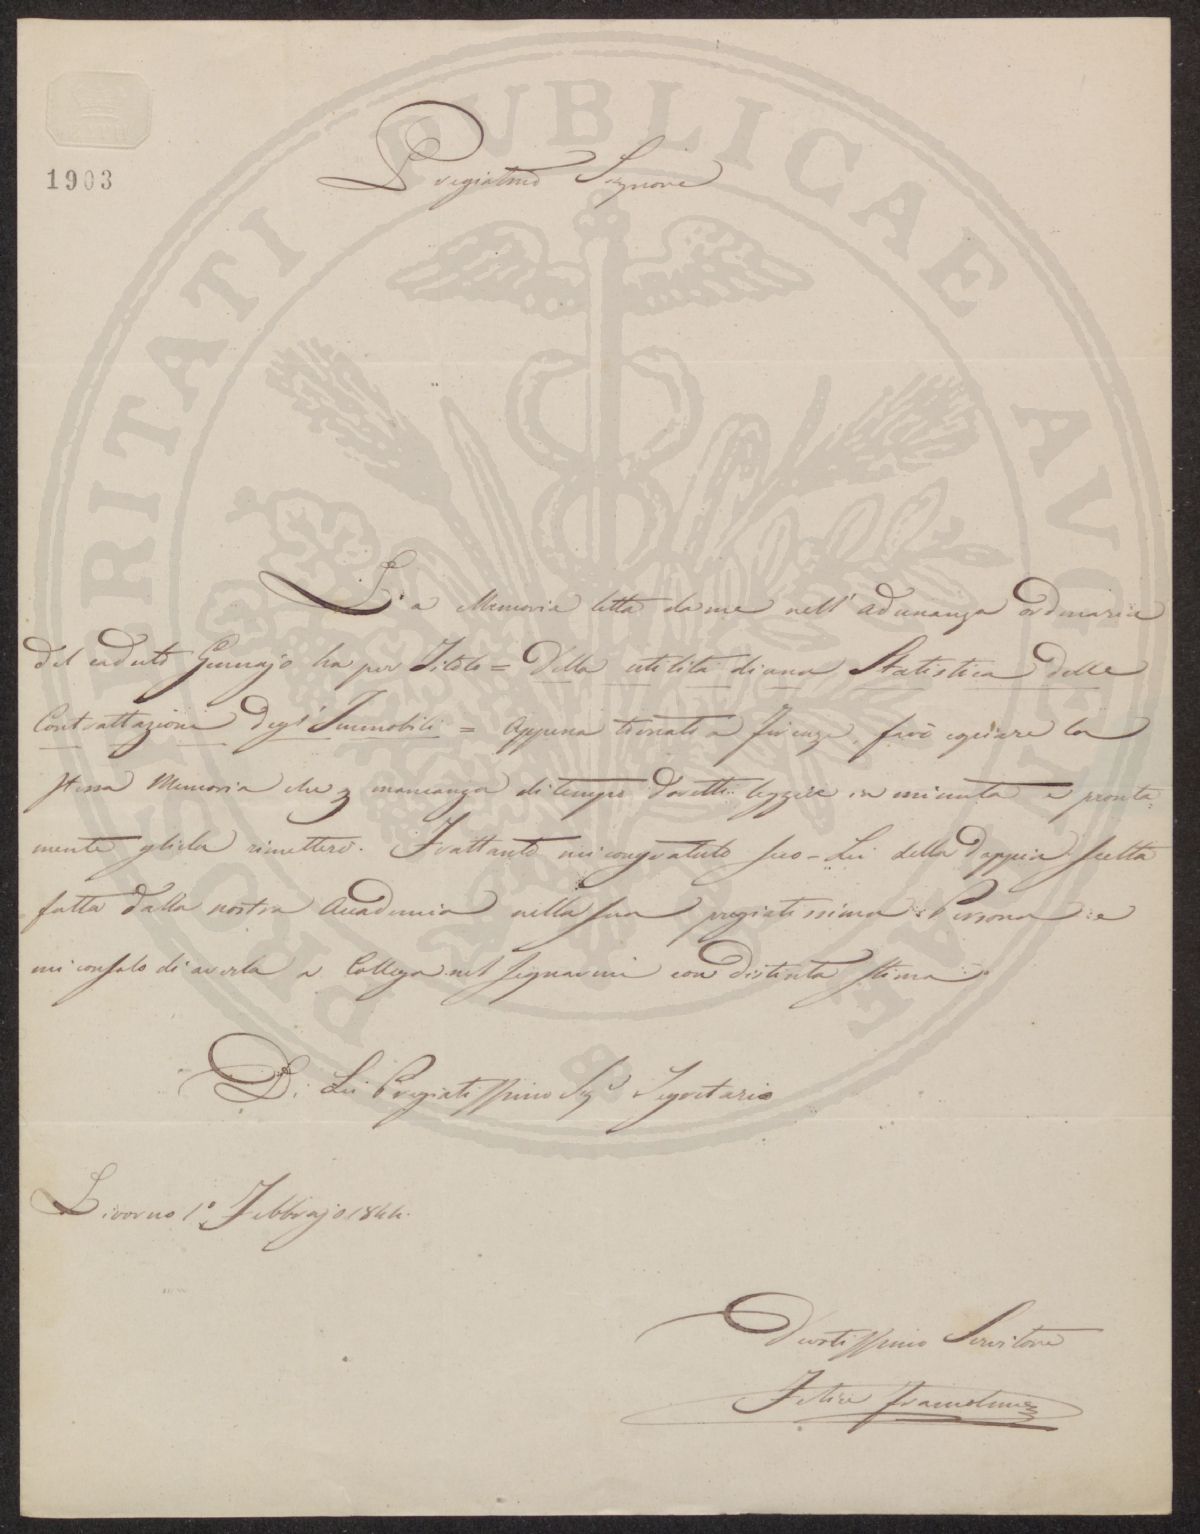 PROSPERITATI PUBLICAE AUGENDAE
BATH
1903
Pregiatmo Signore
La Memoria letta da me nell' adunanza ordinaria
del caduto Gennajo ha per Titolo = Della utilità di una Statistica delle
Contrattazioni degl' Immobili = Appena tornato a Firenze, farò copiare la
stessa Memoria che p mancanza di tempo dovetti leggere in minuta e pronta-
mente gliela rimetterò. Frattanto mi congratulo seco-Lei della doppia scelta
fatta dalla nostra Accademia nella sua pregiatissima Persona e
mi consolo di averla a Collega nel segnarmi con distinta stima
Di Lei Pregiatissimo Sigr Segretario
Livorno 1° Febbrajo 1844.
Devotissimo Servitore
Felice